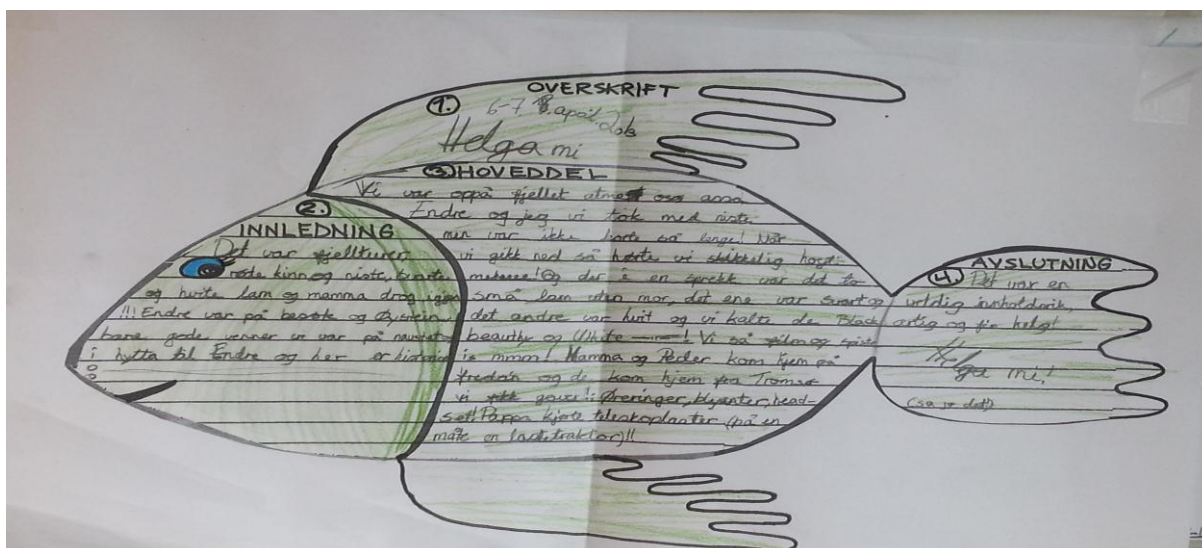 1. OVERSKRIFT
6-7. 8. april. 2013
Helga mi
2.
INNLEDNING
Det var fjellturer
røde kinn og niste, svarte
og hvite lam og mamma drog igjen
!!! Endre var på besøk og Øystein
bare gode venner vi var på
i hytta til Endre og her er historien
:
3. HOVEDDEL
Vi var oppå fjellet
Endre og jeg vi tok med niste
men var ikke borte så lenge! Når
vi gikk ned så hørte vi skikkelig høgt:
! Og der i en sprekk var det to
små lam uten mor, det ene var svart og
det andre var hvit og vi kalte de Black
beauthy og White —"—! Vi så film og spiste
is mmm! Mamma og Peder kom hjem på
fredan og de kom hjem fra Tromsø
vi fikk gaver!: Øreringer, blyanter, head-
sett! Pappa kjørte teleskoplaster (på en
måte en lastetraktor)!!
4. AVSLUTNING
Det var en
veldig innholdsrik,
artig og fin helg!
Helga mi!
(sa jo det!)